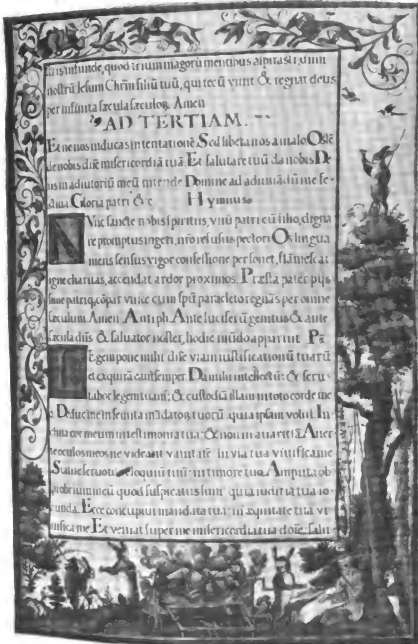 infunde, quod trium magorũ mentibus aspirasti, dñm
nostrũ Iesum Chrm filiũ tuũ, qui tecũ viuit & regnat deus
per infinita sæcula sæculoꝝ. Amen
AD TERTIAM.
Et ne nos inducas in tentationẽ. Sed libera nos a malo Ostẽ
de nobis dñe misericordiã tuã Et salutare tuũ da nobis De
us in adiutoriũ meũ intende Domine ad adiuuãdũ me fe
stina Gloria patri & c Hymnus
Nunc sancte nobis spiritus, vnũ patri cũ filio, digna
re promptus ingeri, nřo refusus pectori Os lingua
mens sensus vigor confessione personet, flãmescat
igne charitas, accendat ardor proximos. Præsta pater pijs
sime patriq, cõpar vnice cum spũ paracleto regnãs per omne
sæculum Amen Antiph Ante luciferũ genitus & ante
sæcula dñs & saluator noster, hodie mũdo apparuit Ps
Legem pone mihi dñe viam iustificationũ tuarũ
et exquirã eam semper Da mihi intellectũ: & scru
tabor legem tuam: & custodiã illam in toto corde me
o Deduc me in semita mãdatoꝝ tuorũ quia ipsam volui In
clina cor meum in testimonia tua: & non in auaritiã Auer
te oculos meos ne videant vanitatẽ in via tua viuifica me
Statue seruo tuo eloquiũ tuũ in timore tuo Amputa op
probrium meũ quod suspicatus sum quia iuditia tua io
cunda Ecce concupiui mandata tua in æquitate tua vi
uifica me Et veniat super me misericordia tua dñe: salu